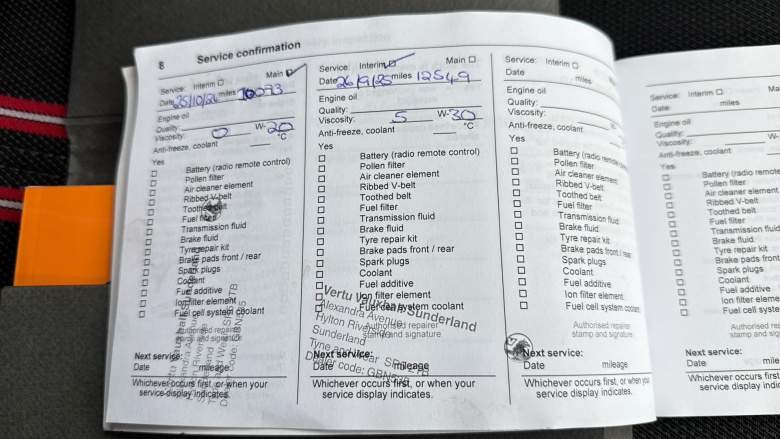 8 Service confirmation
Service: Interim Main
Date 25/10/24 miles 10073
Engine oil
Quality:
Viscosity: 0 W-20
Anti-freeze, coolant °C
Yes
Battery (radio remote control)
Pollen filter
Air cleaner element
Ribbed V-belt
Toothed belt
Fuel filter
Transmission fluid
Brake fluid
Tyre repair kit
Brake pads front / rear
Spark plugs
Coolant
Fuel additive
Ion filter element
Fuel cell system coolant
Authorised repairer
stamp and signature
Next service:
Date mileage
Whichever occurs first, or when your
service display indicates.
Service: Interim Main
Date 26/9/25 miles 12549
Engine oil
Quality:
Viscosity: 5 W-30
Anti-freeze, coolant °C
Yes
Battery (radio remote control)
Pollen filter
Air cleaner element
Ribbed V-belt
Toothed belt
Fuel filter
Transmission fluid
Brake fluid
Tyre repair kit
Brake pads front / rear
Spark plugs
Coolant
Fuel additive
Ion filter element
Fuel cell system coolant
Vertu Vauxhall Sunderland
Alexandra Avenue
Hylton Riverside
Sunderland
Tyne and Wear
Dealer code:
Authorised repairer
stamp and signature
Next service:
Date mileage
Whichever occurs first, or when your
service display indicates.
Service: Interim Main
Date miles
Engine oil
Quality:
Viscosity: W-
Anti-freeze, coolant °C
Yes
Battery (radio remote control)
Pollen filter
Air cleaner element
Ribbed V-belt
Toothed belt
Fuel filter
Transmission fluid
Brake fluid
Tyre repair kit
Brake pads front / rear
Spark plugs
Coolant
Fuel additive
Ion filter element
Fuel cell system coolant
Authorised repairer
stamp and signature
Next service:
Date mileage
Whichever occurs first, or when your
service display indicates.
Service: Interim Ma
Date miles
Engine oil
Quality:
Viscosity: W-
Anti-freeze, coolant
Yes
Battery (radio remote
Pollen filter
Air cleaner element
Ribbed V-belt
Toothed belt
Fuel filter
Transmission fluid
Brake fluid
Tyre repair kit
Brake pads front
Spark plugs
Coolant
Fuel additive
Ion filter eleme
Fuel cell syste
Authorised rep
stamp and sig
Next service:
Date mileage
Whichever occurs first
service display indic